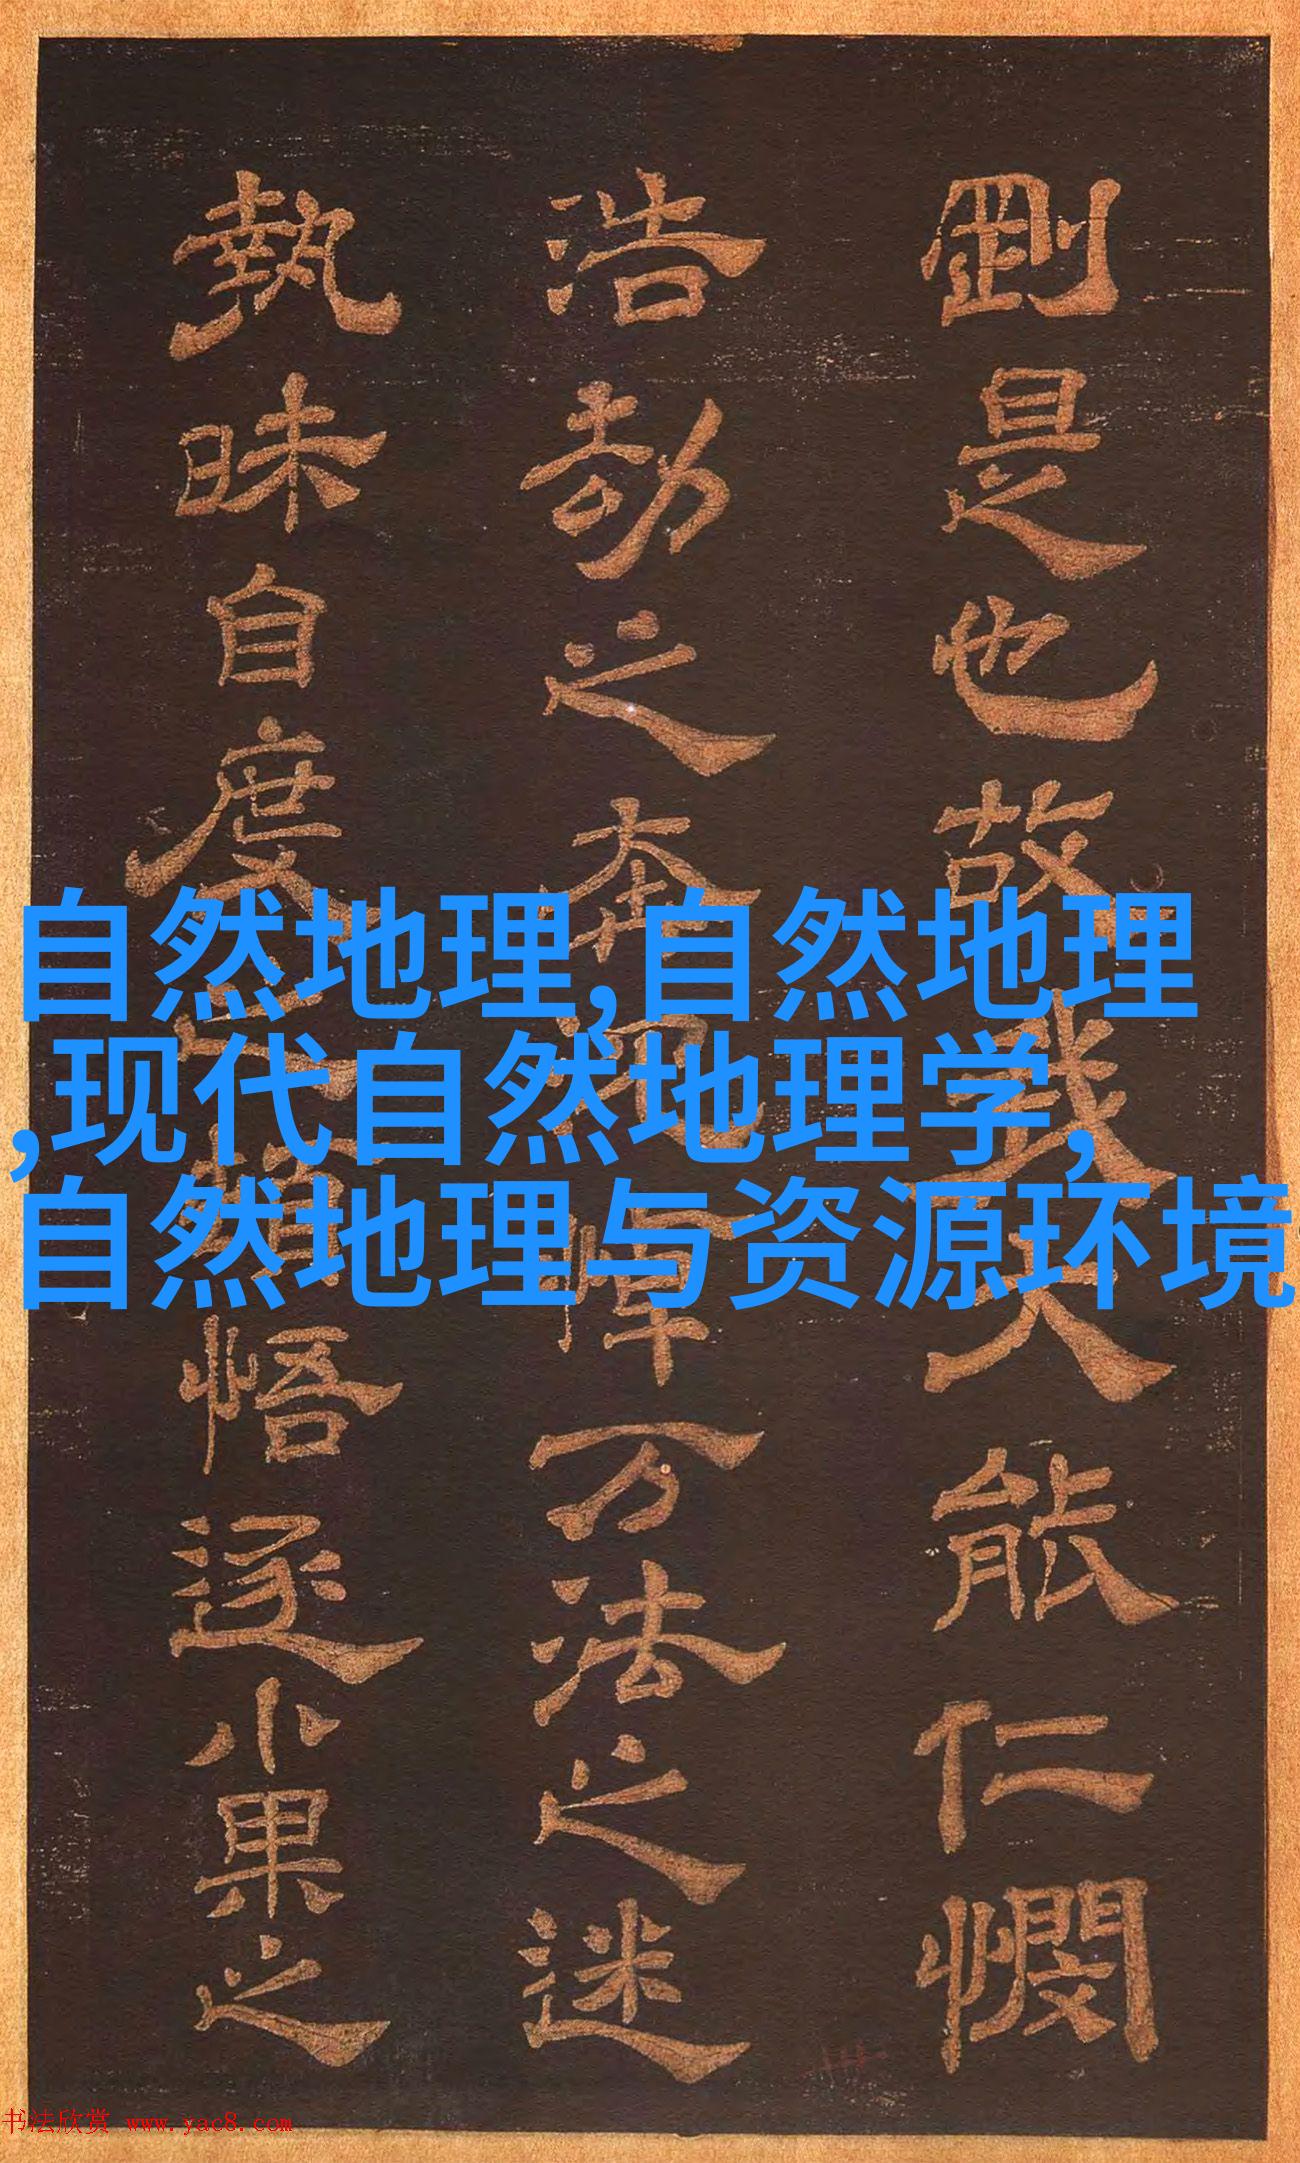 剛是也故我大能仁憫
浩劫之悼万法之迷
執昧自度悟遂小果之
自然地理,自然地理
,现代自然地理学,
自然地理与资源环境
书法欣赏 www.yac8.com